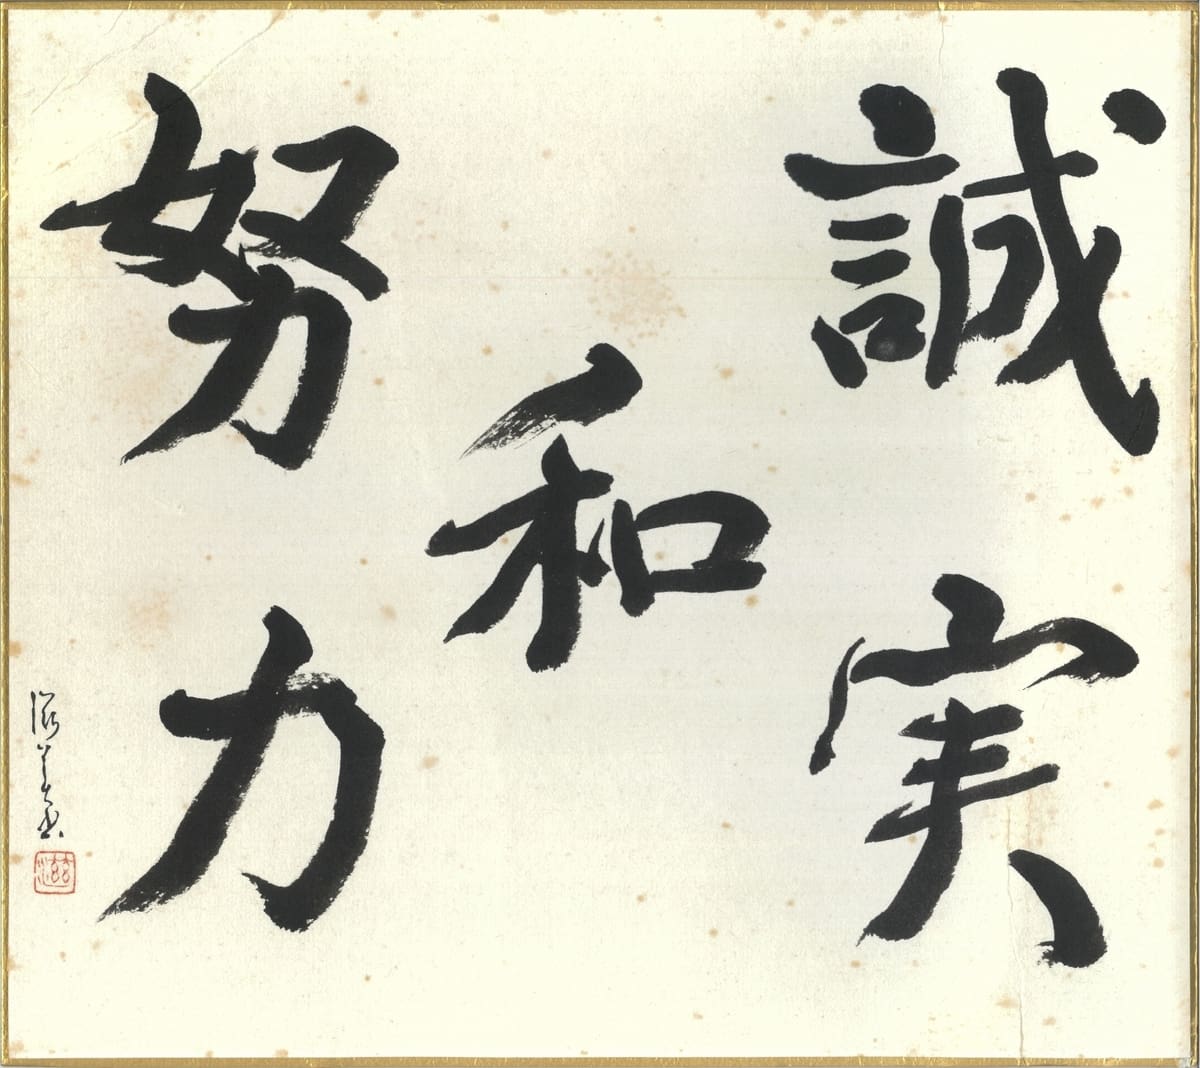 誠実
和
努力